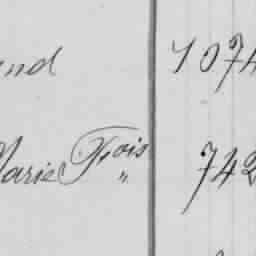 end 1074
Marie Fçois 742
"